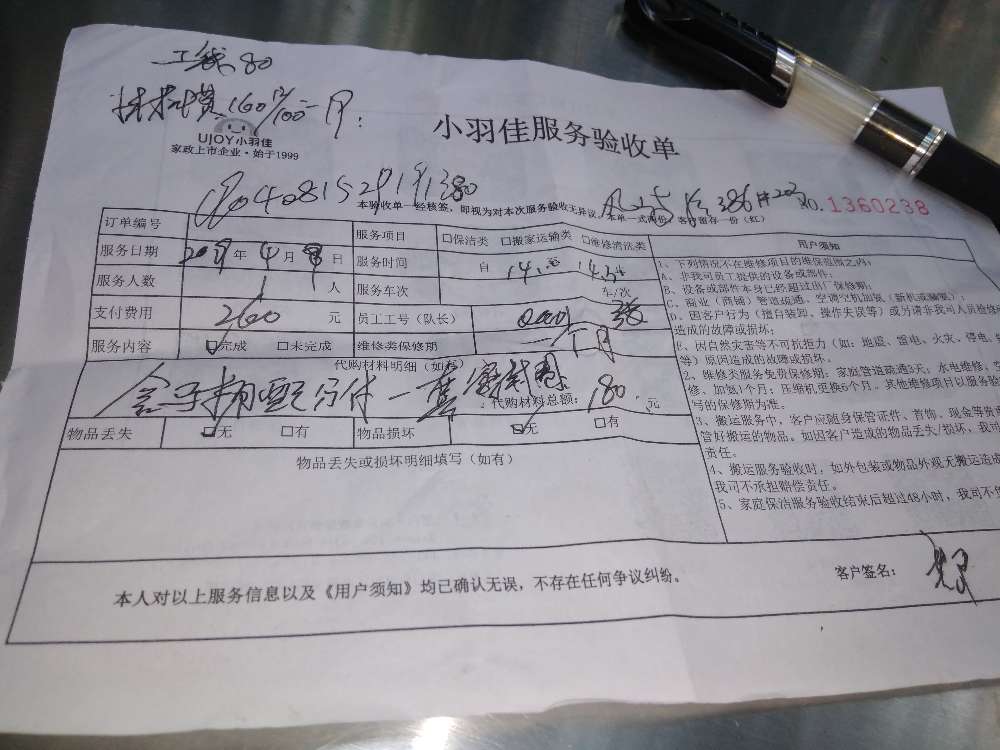 工钱80
材料费160
UJOY小羽佳
家政上市企业·始于1999
小羽佳服务验收单
本验收单一经核签,即视为对本次服务验收无异议
本单一式两份,客户留存一份(红)
NO.1360238
订单编号
服务项目 □保洁类 □搬家运输类 □维修清洗类
服务日期 年 4 月 8 日
服务时间 自
服务人数 1 人
服务车次 车/次
支付费用 元
员工工号(队长)
服务内容 ☑完成 □未完成
维修类保修期 一个月
代购材料明细(如有)
代购材料总额: 180 元
物品丢失 ☑无 □有
物品损坏 ☑无 □有
物品丢失或损坏明细填写(如有)
用户须知
1、下列情况不在维修项目的维保范围之内:
A、非我司员工提供的设备或部件;
B、设备或部件本身已经超过出厂保修期;
C、商业(商铺)管道疏通、空调空机加氨(新机或搬家);
D、因客户行为(擅自装卸、操作失误等)或另请非我司人员维修
造成的故障或损坏;
E、因自然灾害等不可抗拒力(如:地震、雷电、火灾、停电、
等)原因造成的故障或损坏。
2、维修类服务免费保修期:家庭管道疏通3天;水电维修、空
修、加氨1个月;压缩机更换6个月。其他维修项目以服务验
写的保修期为准。
3、搬运服务中,客户应随身保管证件、首饰、现金等贵重
管好搬运的物品。如因客户造成的物品丢失/损坏,我司
责任。
4、搬运服务验收时,如外包装或物品外观无搬运造成
我司不承担赔偿责任。
5、家庭保洁服务验收结束后超过48小时,我司不负
本人对以上服务信息以及《用户须知》均已确认无误,不存在任何争议纠纷。
客户签名: